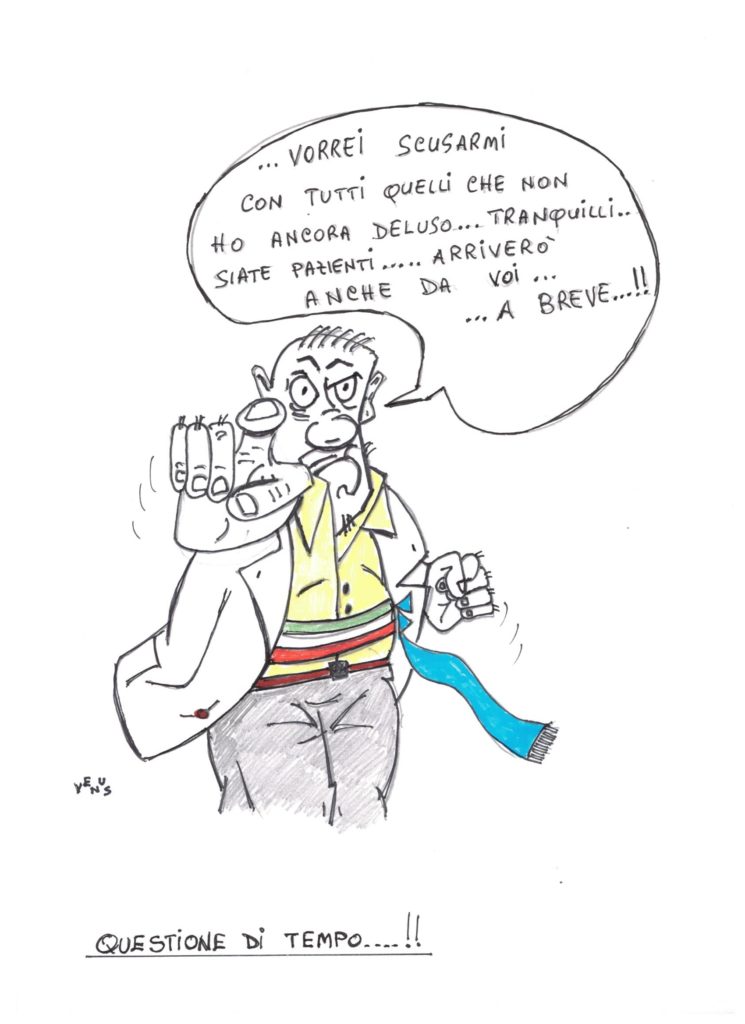 ...VORREI SCUSARMI
CON TUTTI QUELLI CHE NON
HO ANCORA DELUSO....TRANQUILLI..
SIATE PAZIENTI..... ARRIVERÒ
ANCHE DA VOI ...
...A BREVE...!!
VENUS
QUESTIONE DI TEMPO....!!